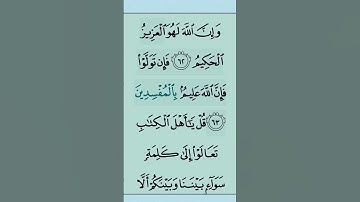 وَإِنَّ ٱللَّهَ لَهُوَ ٱلْعَزِيزُ
ٱلْحَكِيمُ ۝٦٢ فَإِن تَوَلَّوْا۟
فَإِنَّ ٱللَّهَ عَلِيمٌۢ بِٱلْمُفْسِدِينَ
۝٦٣ قُلْ يَـٰٓأَهْلَ ٱلْكِتَـٰبِ
تَعَالَوْا۟ إِلَىٰ كَلِمَةٍۢ
سَوَآءٍۭ بَيْنَنَا وَبَيْنَكُمْ أَلَّا